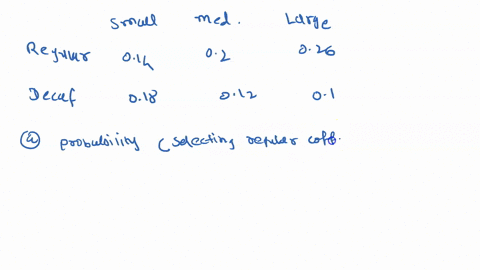 Small med. Large
Regular 0.14 0.2 0.26
Decaf 0.18 0.12 0.1
(a) probability (selecting regular coff.